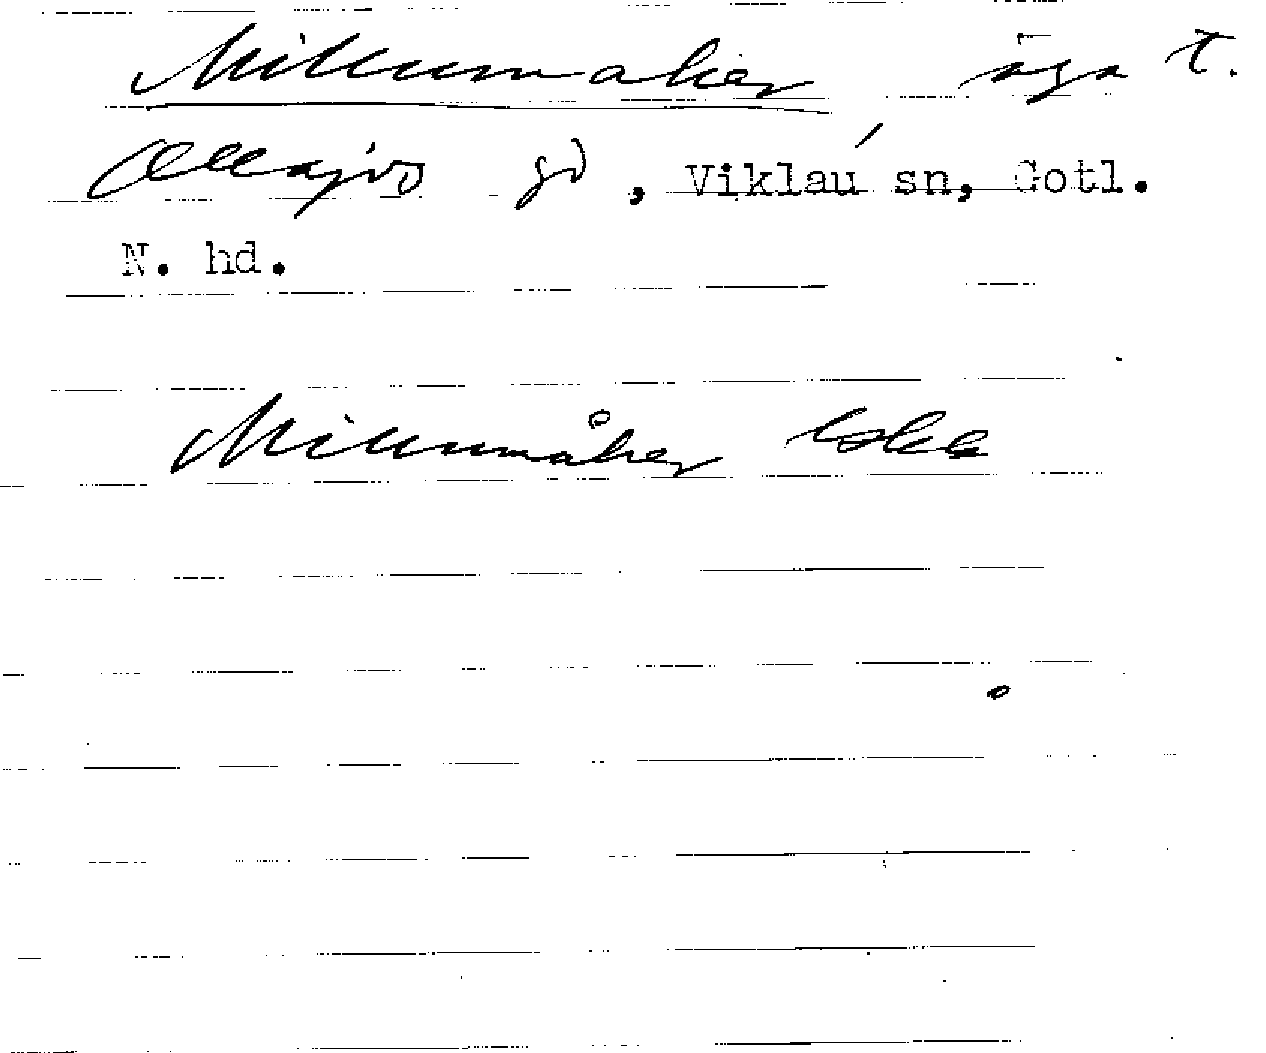 Millumaker äga t.
Allajvs gd, Viklau sn, Gotl.
N. hd.
Millumåker